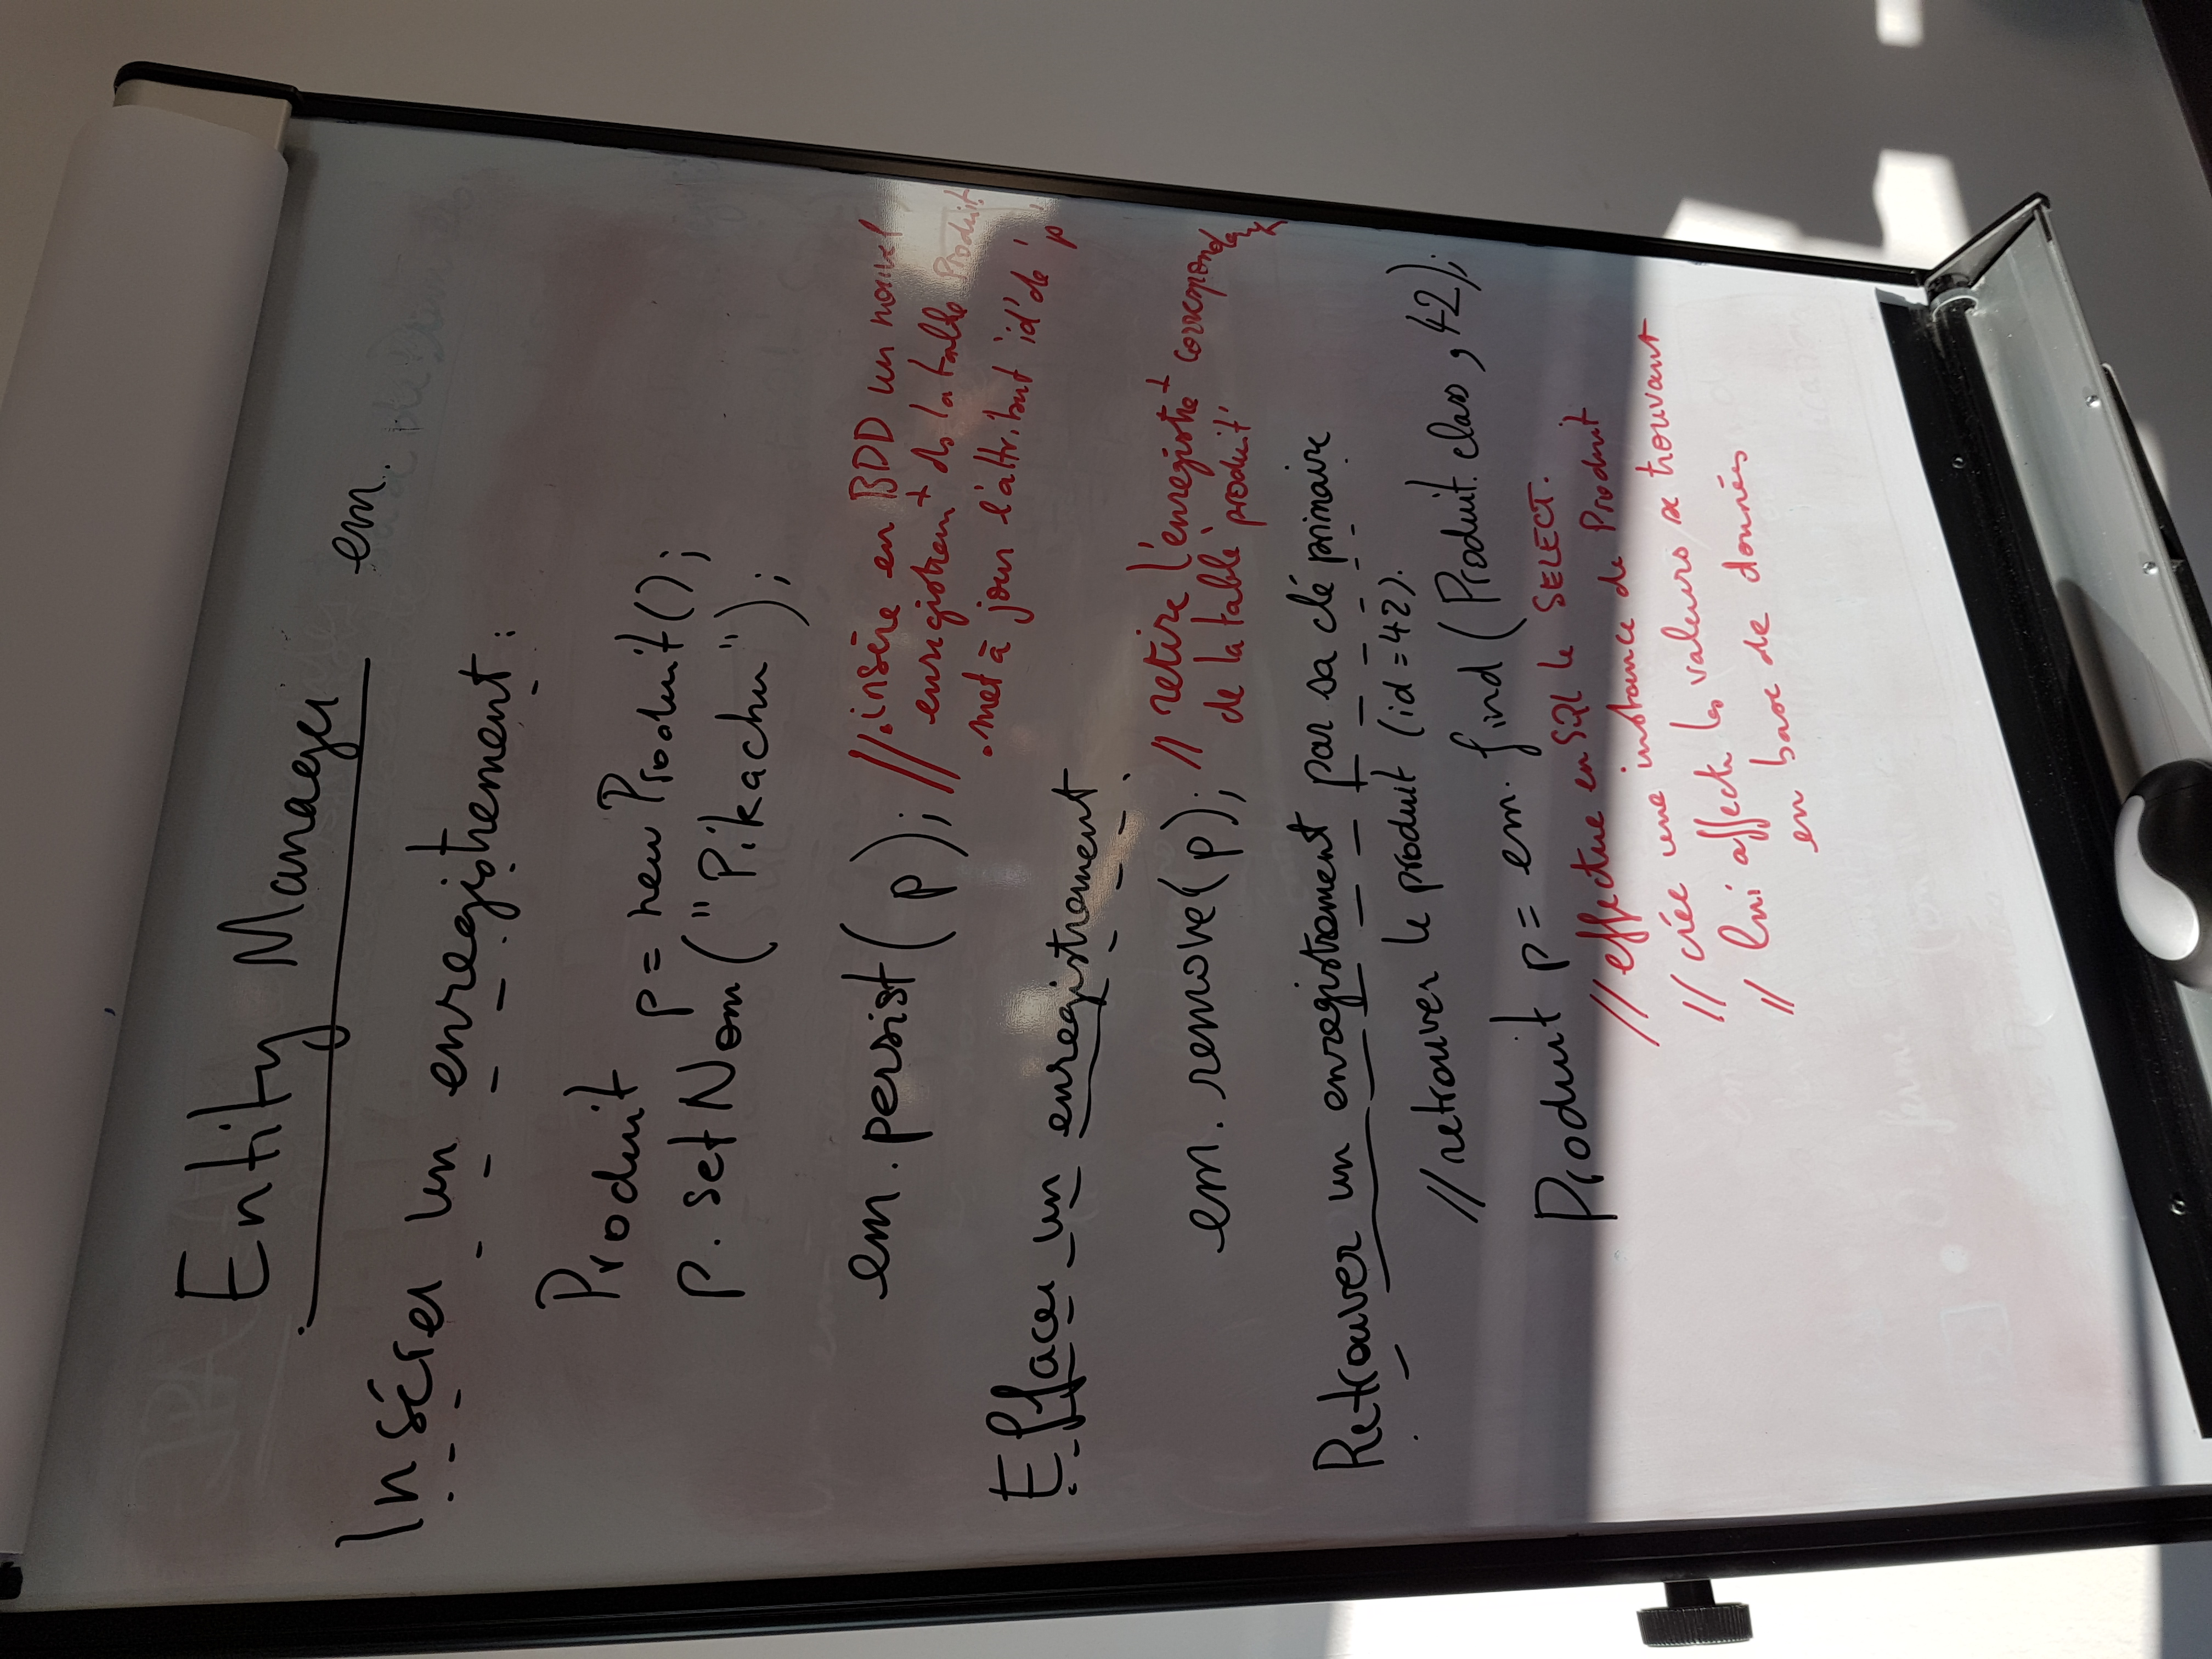 Entity Manager em.
Insérer un enregistrement :
Produit p = new Produit();
p.setNom("Pikachu");
em.persist(p); //.insère en BDD un nouvel
enregistremt ds la table Produit.
.met à jour l'attribut 'id' de 'p'
Effacer un enregistrement
em.remove(p); // retire l'enregistret correspondant
de la table 'produit'
Retrouver un enregistrement par sa clé primaire
//retrouver le produit (id=42).
Produit p = em.find(Produit.class, 42);
//effectue en SQL le SELECT.
// crée une instance de Produit
// lui affecte les valeurs se trouvant
en base de données